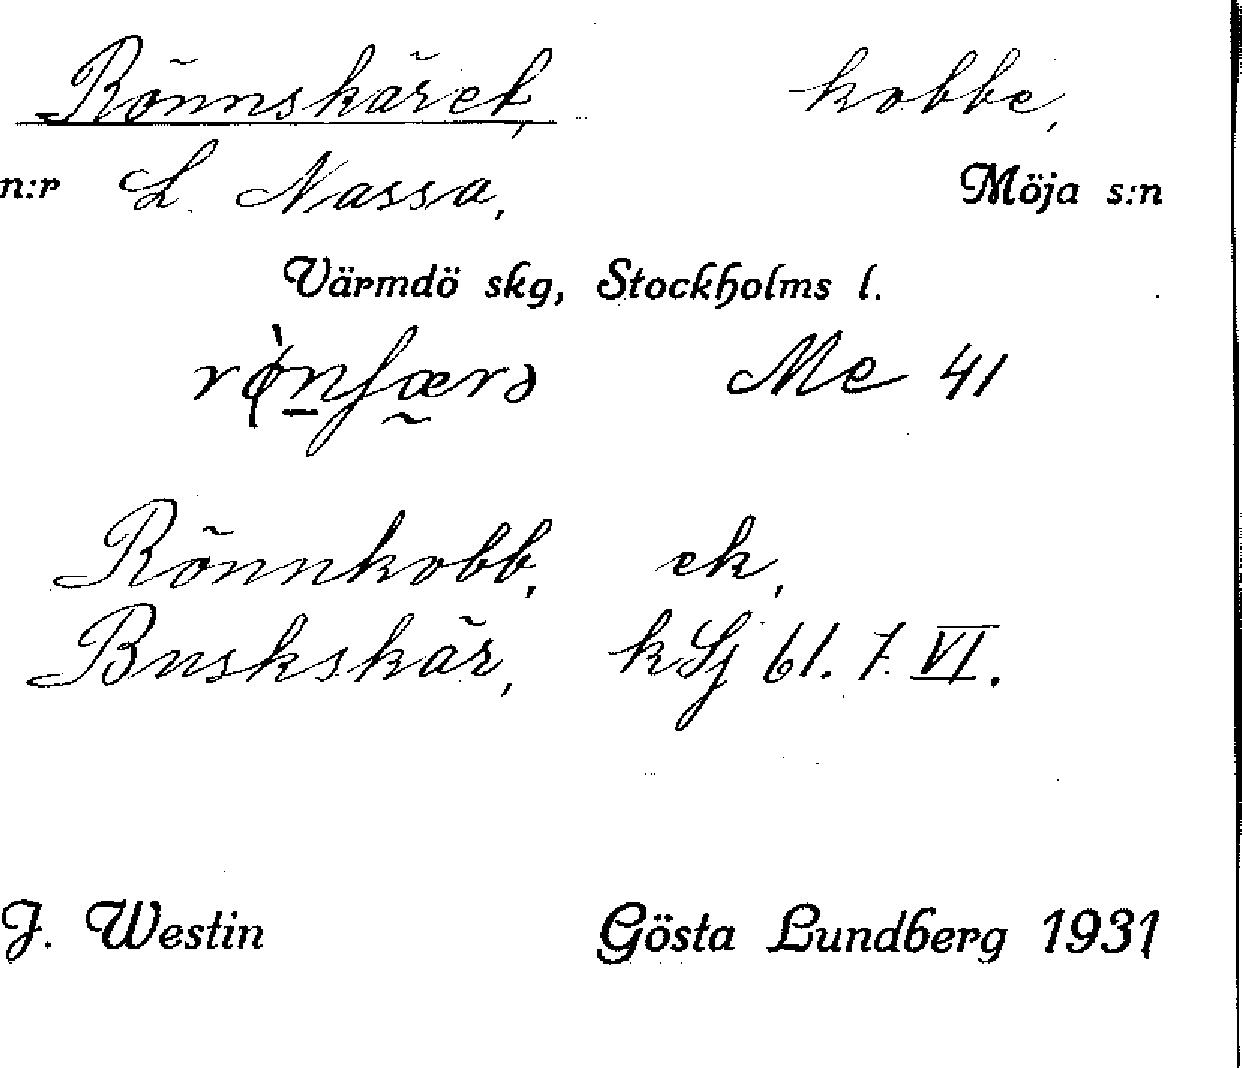 Rönnskäret, kobbe,
n:r L. Nassa, Möja s:n
Värmdö skg, Stockholms l.
Me 41
Rönnkobb, ek,
Buskskär, kSj 61. 7. VI.
J. Westin Gösta Lundberg 1931